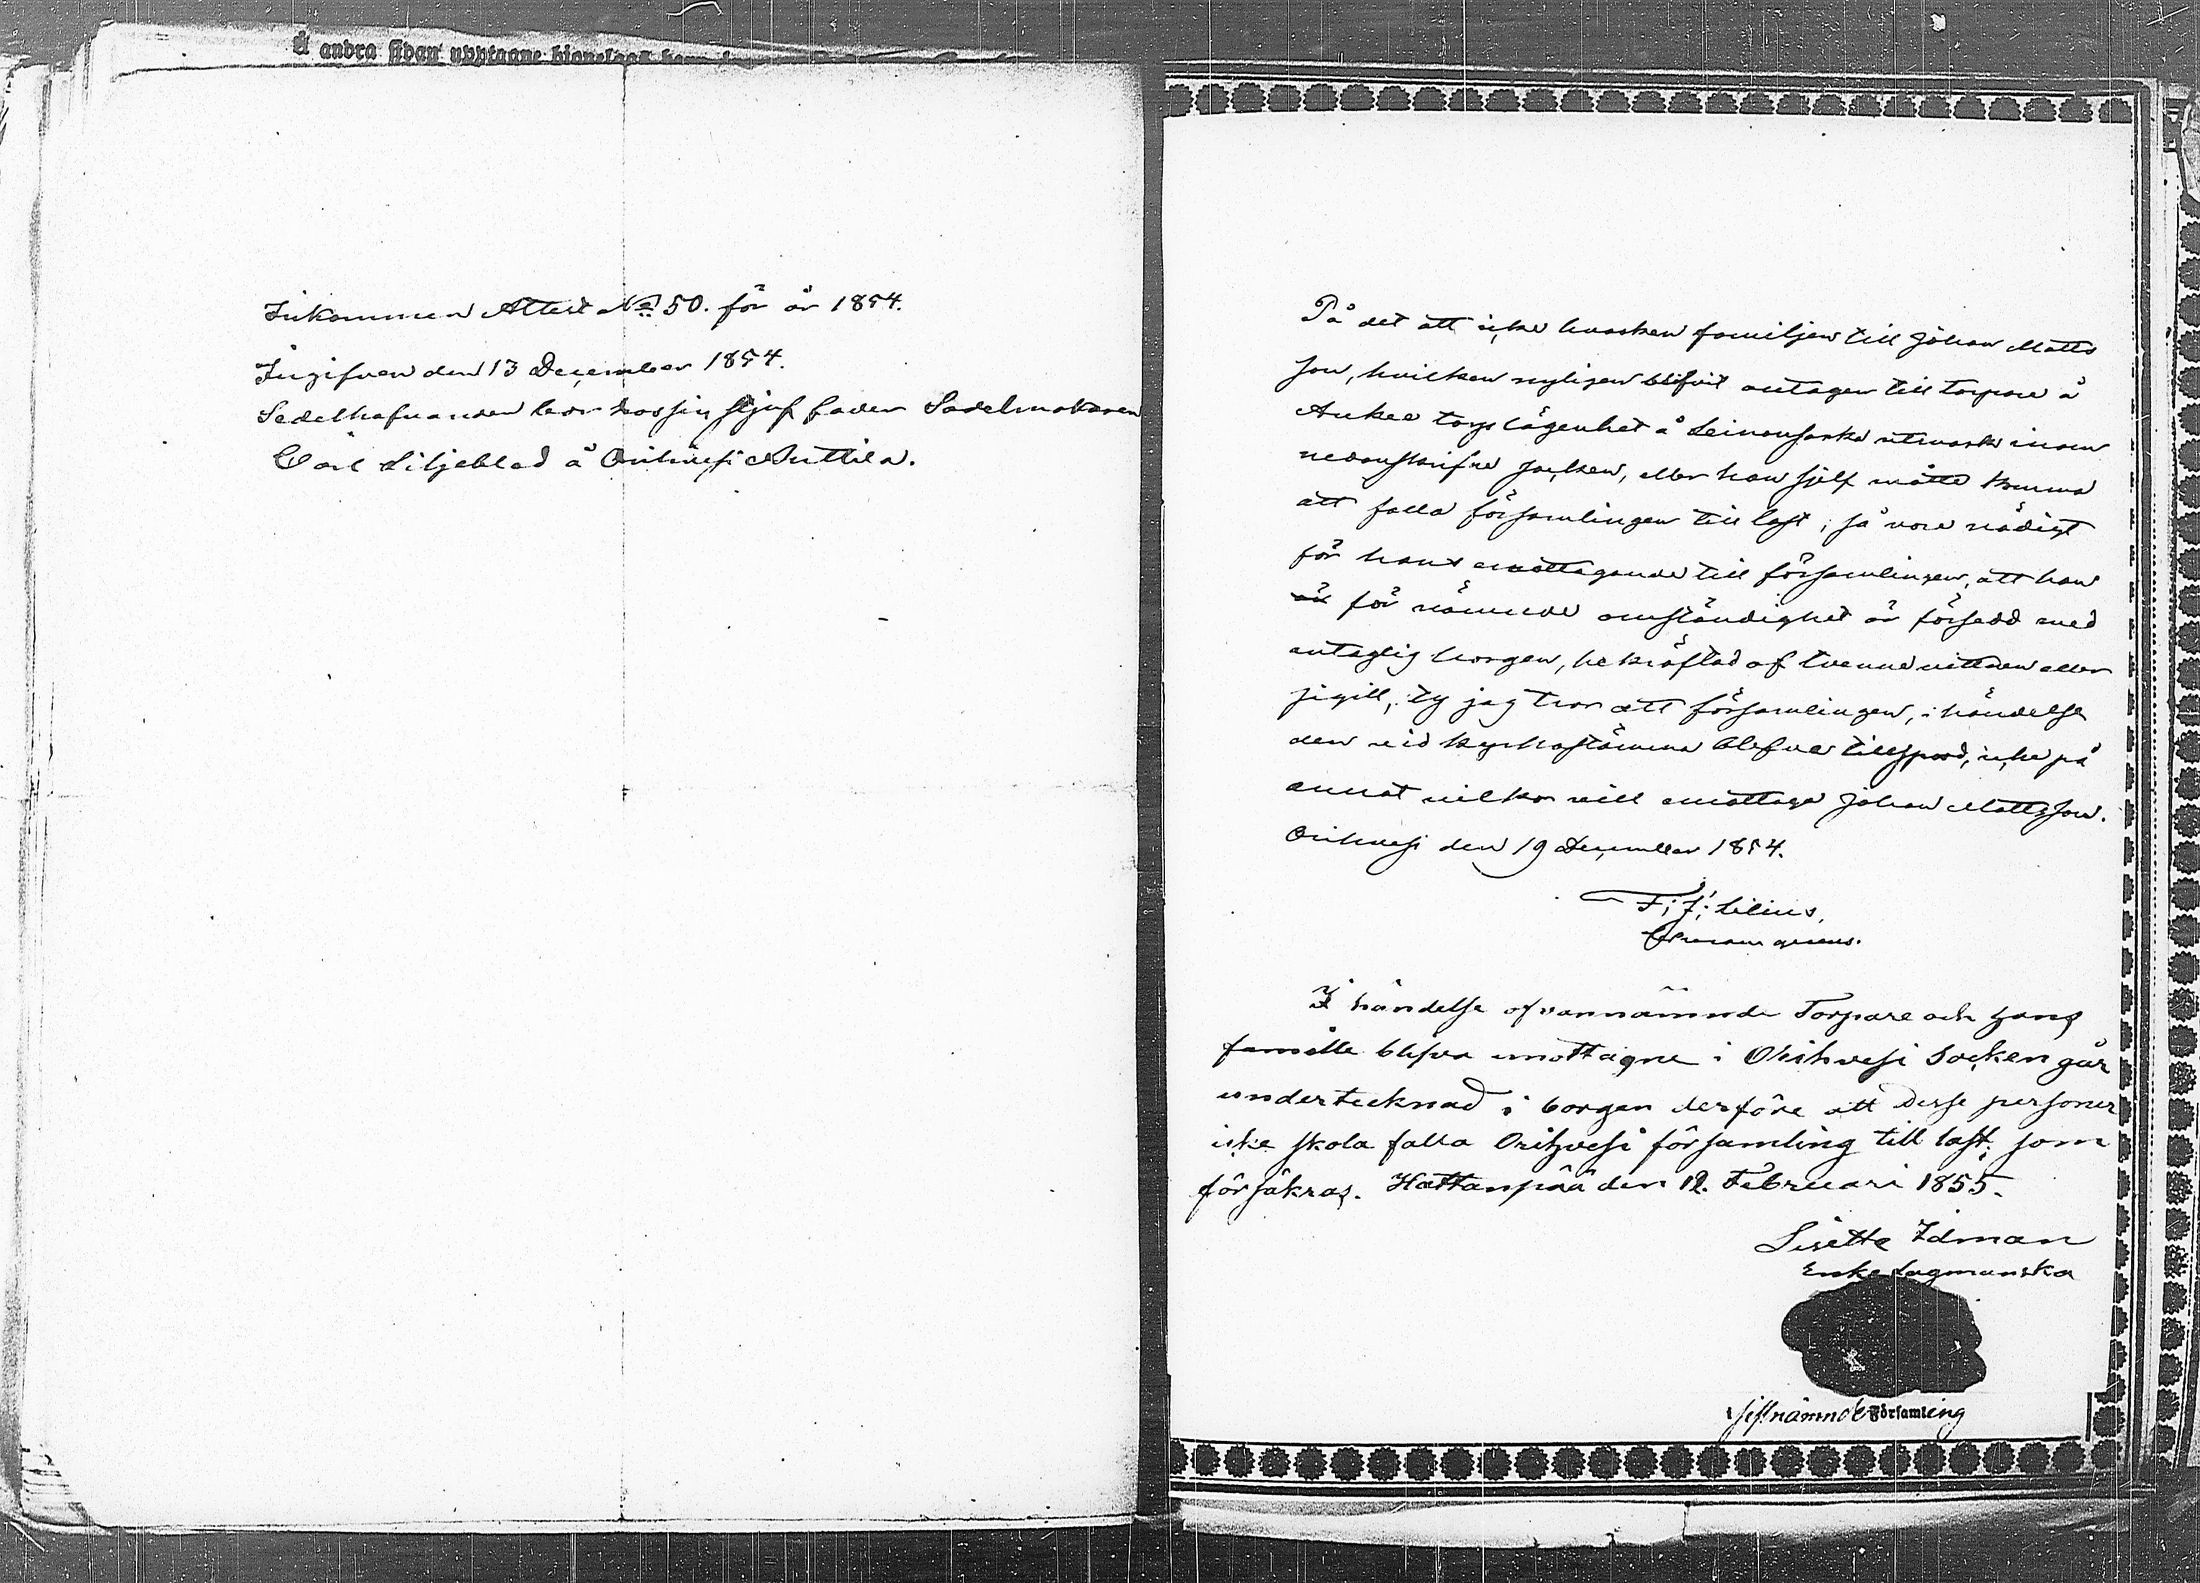 å andra sidan upptagne
Inkommen Attest No 50. för år 1854.
Ingifven den 13 December 1854.
Sedelhafvanden bor hos sin stjuf fader Sadelmakaren
Carl Liljeblad å Orihvesi Anttila.
På det att icke hvarken familjen till Johan Matts
son, hvilken nyligen blifvit antagen till torpare å
torpslägenhet å utmark inom
nedanskrifne socken, eller han sjelf måtte komma
att falla församlingen till last; så vore nödigt
för hans emottagande till församlingen, att han
för nämnde omständighet är försedd med
antaglig borgen, bekräftad af tvenne vittnen eller
sigill, ty jag tror att församlingen, i händelse
den vid kyrkostämma blefve tillspord, icke på
annat vilkor vill emottaga Johan Mattsson.
Orihvesi den 19 December 1854.
F: J: Lilius,
I händelse ofvannämnde Torpare och hans
famille blifva emottagne i Orihvesi Socken går
undertecknad i borgen derföre att desse personer
icke skola falla Orihvesi församling till last som
försäkras. Hattanpää den 12. Februari 1855.
Lisette Idman
Enke Lagmanska
sistnämnde Församling